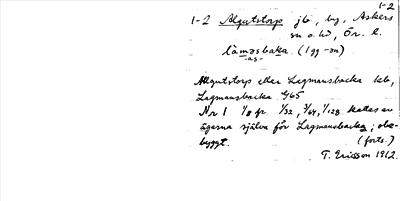 1-2
1-2 Algutstorp jb, by, Askers
sn o. hd, Ör. l.
lamasbaka (1gg -on)
-as-
Algutstorp eller Lagmansbacka hb,
Lagmansbacka G65
Nr 1 1/8 fr. 1/32, 3/64, 1/128 kallas av
ägarna själva för Lagmansbacka; obe-
byggt. (forts.)
T. Ericsson 1912.